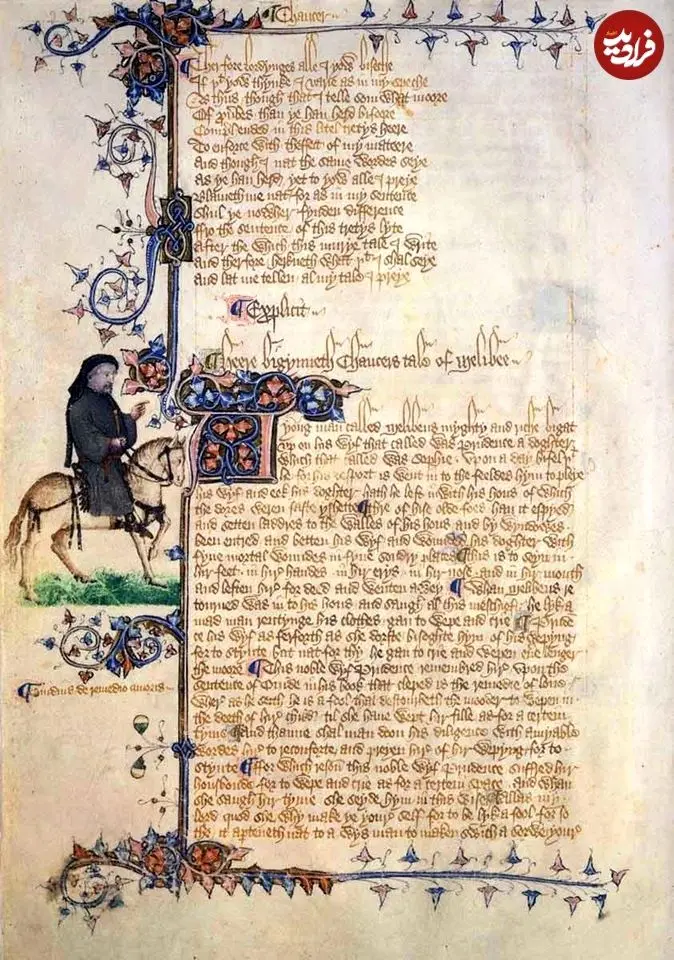 Chaucer
فرادید
Therfore lordynges alle I yow biseche
If þt yow thynke I varie as in my speche
As thus though that I telle som what moore
Of prouerbes than ye han herd bifoore
Comprehended in this litel tretys heere
To enforce with theffect of my mateere
And though I nat the same wordes seye
As ye han herd, yet to yow alle I preye
Blameth me nat for as in my sentence
Shul ye nowher fynden difference
Fro the sentence of this tretys lyte
After the which this murye tale I write
And therfore herkneth what þt I shal seye
And lat me tellen al my tale I preye
Explicit
Heere bigynneth Chaucers tale of Melibee
A yong man called Melibeus myghty and riche bigat
vp on his wyf that called was Prudence a doghter
which that called was Sophie. Vpon a day bifel þt
he for his desport is went in to the feeldes hym to pleye
his wyf and eek his doghter hath he left in with his hous of which
the dores weren faste yshette Thre of hise olde foes han it espyed
and setten laddres to the walles of his hous and by wyndowes
been entred and betten his wyf and wounded his doghter with
fyue mortal woundes in fyue sondry places This is to seyn in
hir feet. in hir handes. in hir erys. in hir nose. and in hir mouth
and leften hir for deed and wenten awey Whan Melibeus re
tourned was in to his hous and saugh al this meschief. he lyk a
mad man rentynge his clothes gan to wepe and crie Pruden
ce his wyf as ferforth as she dorste bisoghte hym of his wepyng
for to stynte but nat for thy he gan to crie and wepen euer lenger
the moore This noble wyf Prudence remembred hir vpon the
sentence of Ouide in his book that cleped is the remedie of loue
Ouidius de remedio amoris
wher as he seith he is a fool that destourbeth the mooder to wepen in
the deeth of hir child til she haue wept hir fille as for a certein
tyme and thanne shal man doon his diligence with amyable
wordes hir to reconforte and preyen hir of hir wepyng for to
stynte For which reson this noble wyf Prudence suffred hir
housbonde for to wepe and crie as for a certein space. and whan
she saugh hir tyme she seyde hym in this wise Allas my
lord quod she why make ye youre self for to be lyk a fool for so
the it aperteneth nat to a wys man to maken swich a sorwe youre